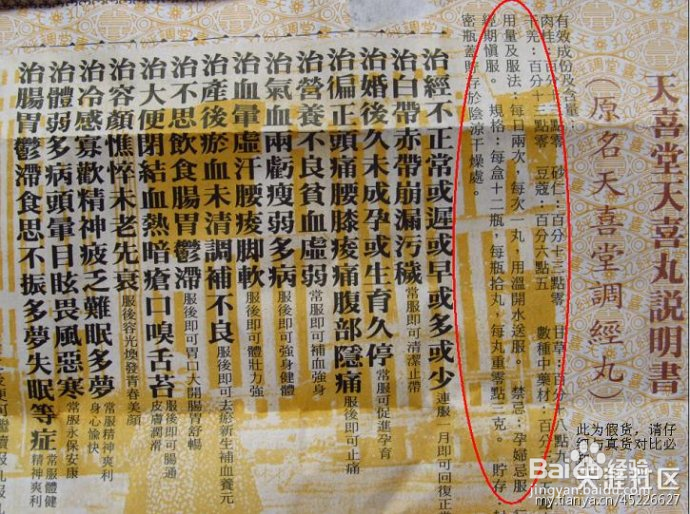 天喜堂天喜丸説明書
（原名天喜堂調經丸）
有效成份及含量
肉桂：百分十三點零 砂仁：百分十三點零 甘草：百分十八點九
干羌：百分十三點零 豆蔻：百分六點五 數種中藥材：百分
用量及服法：每日兩次，每次一丸，用溫開水送服。 禁忌：孕婦忌服
經期慎服。 規格：每盒十二瓶，每瓶拾丸，每丸重零點三克。 貯存
密瓶蓋貯存於陰凉干燥處。
治經不正常或遲或早或多或少 連服一月即可回復正
治白帶赤帶崩漏污穢 常服即可清潔止帶
治婚後久未成孕或生育久停 常服可促進孕育
治偏正頭痛腰膝痠痛腹部隱痛 服後即可止痛
治營養不良貧血虛弱 常服即可補血強身
治氣血兩虧瘦弱多病 服後即可強身健體
治血暈虛汗腰痠脚軟 服後即可體壯力強
治產後瘀血未清調補不良 服後即可去瘀新生補血養元
治不思飲食腸胃鬱滯 服後即可胃口大開腸胃舒暢
治大便閉結血熱暗瘡口嗅舌苔 服後即可腸通皮膚潤滑
治容顏憔悴未老先衰 服後容光煥發青春美顏
治冷感寡歡精神疲乏難眠多夢 常服精神爽利身心愉快
治體弱多病頭暈目眩畏風惡寒 常服永保安康
治腸胃鬱滯食思不振多夢失眠等症 常服體健精神爽利
此为假货，请仔
细与真货对比必
Baidu百科经验
jingyan.baidu.com
天涯社区
my.tianya.cn/45226627